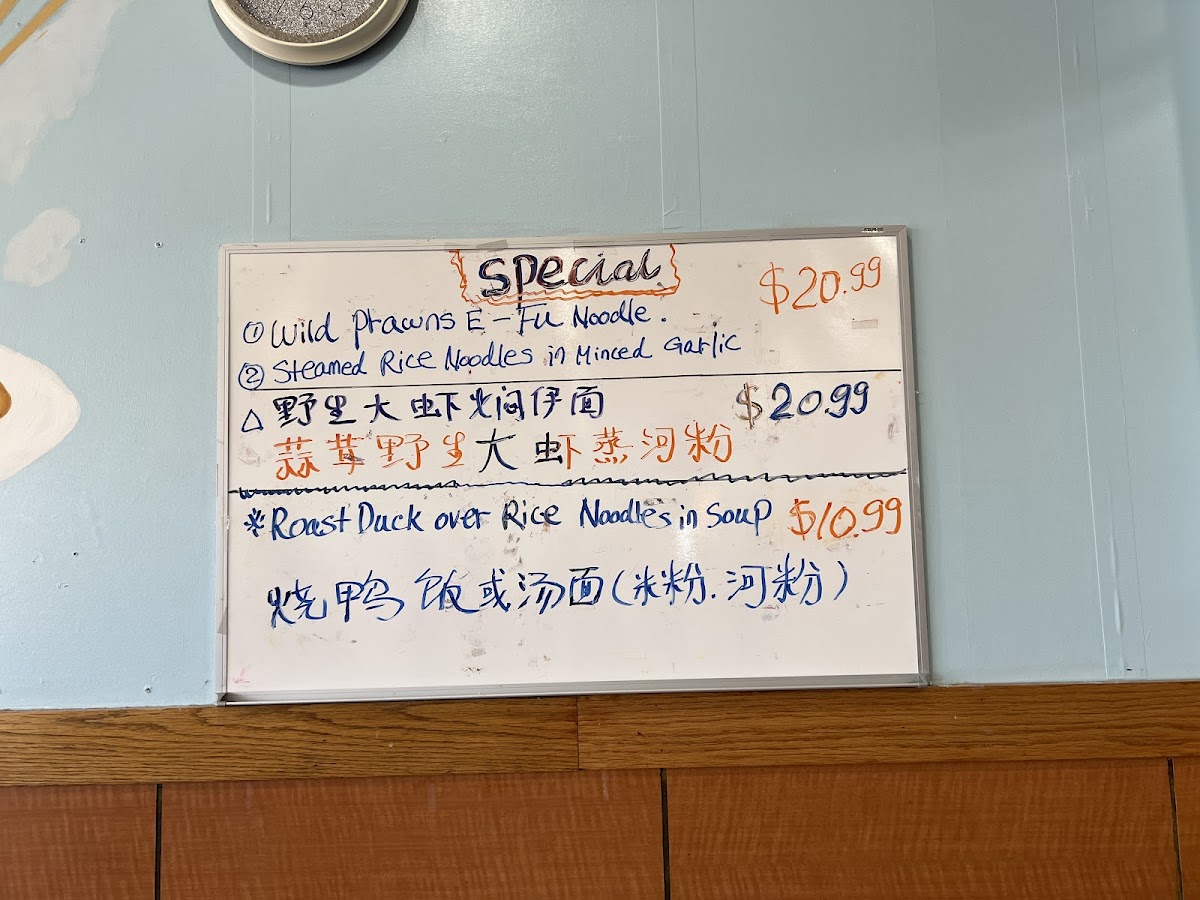 Special $20.99
① Wild Prawns E-Fu Noodle.
② Steamed Rice Noodles in Minced Garlic
△ 野生大虾焖伊面 $20.99
蒜茸野生大虾蒸河粉
※ Roast Duck over Rice Noodles in Soup $10.99
烧鸭饭或汤面(米粉.河粉)